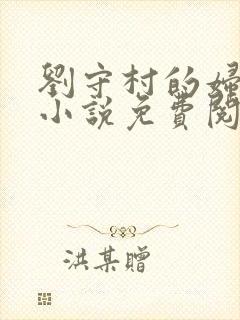 劉守村的婦
小說免費閱
洪某贈